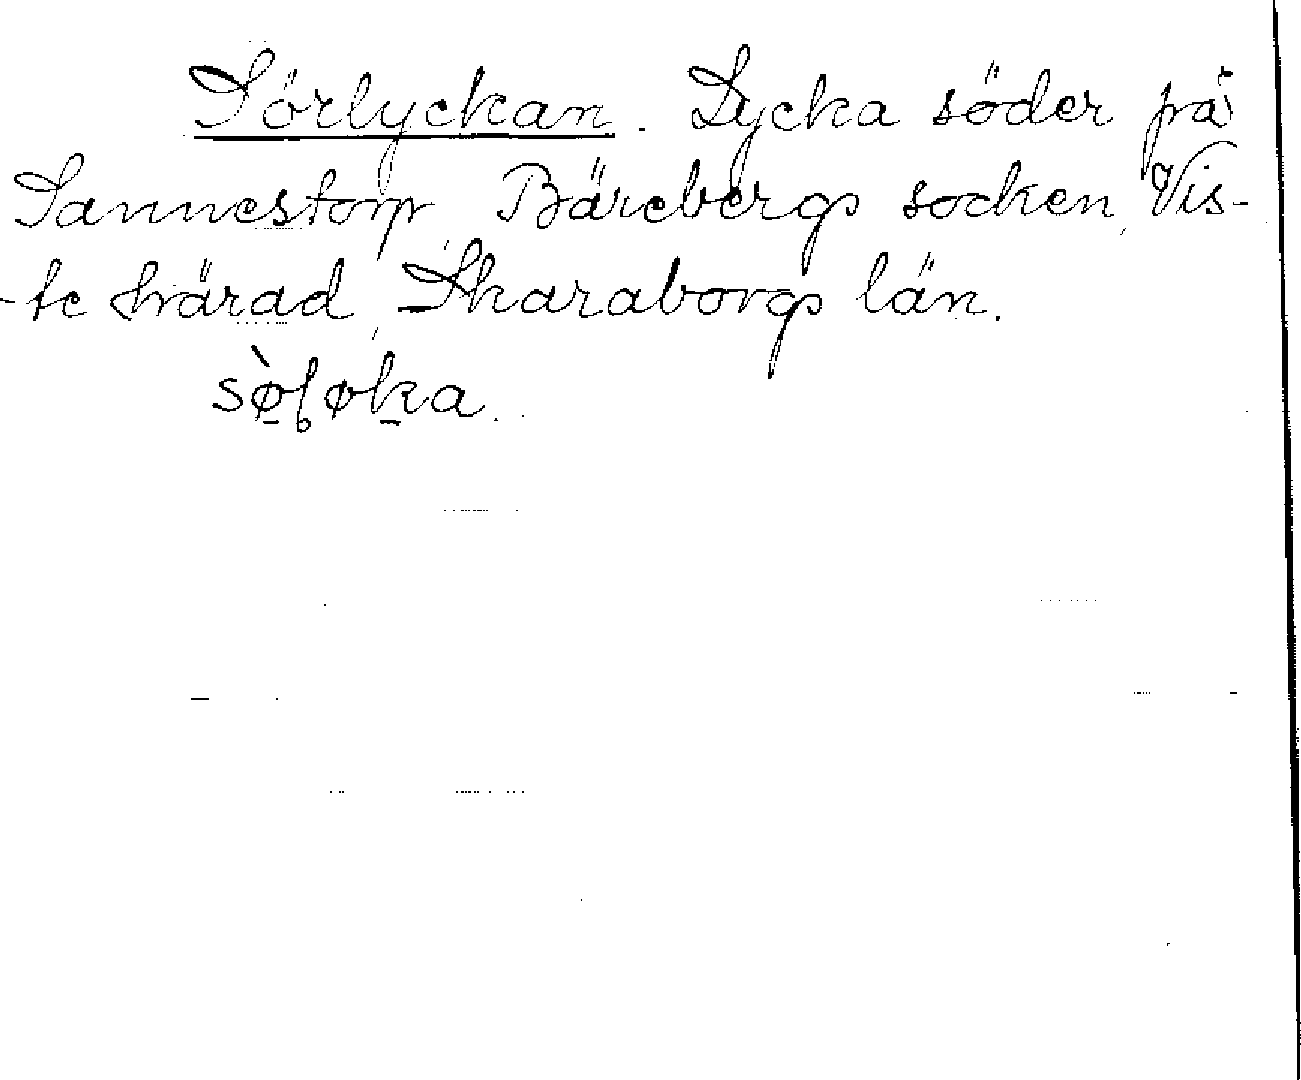 Sörlyckan. Lycka söder på
Sannestorp Bärebergs socken, Vis-
-te härad, Skaraborgs län.